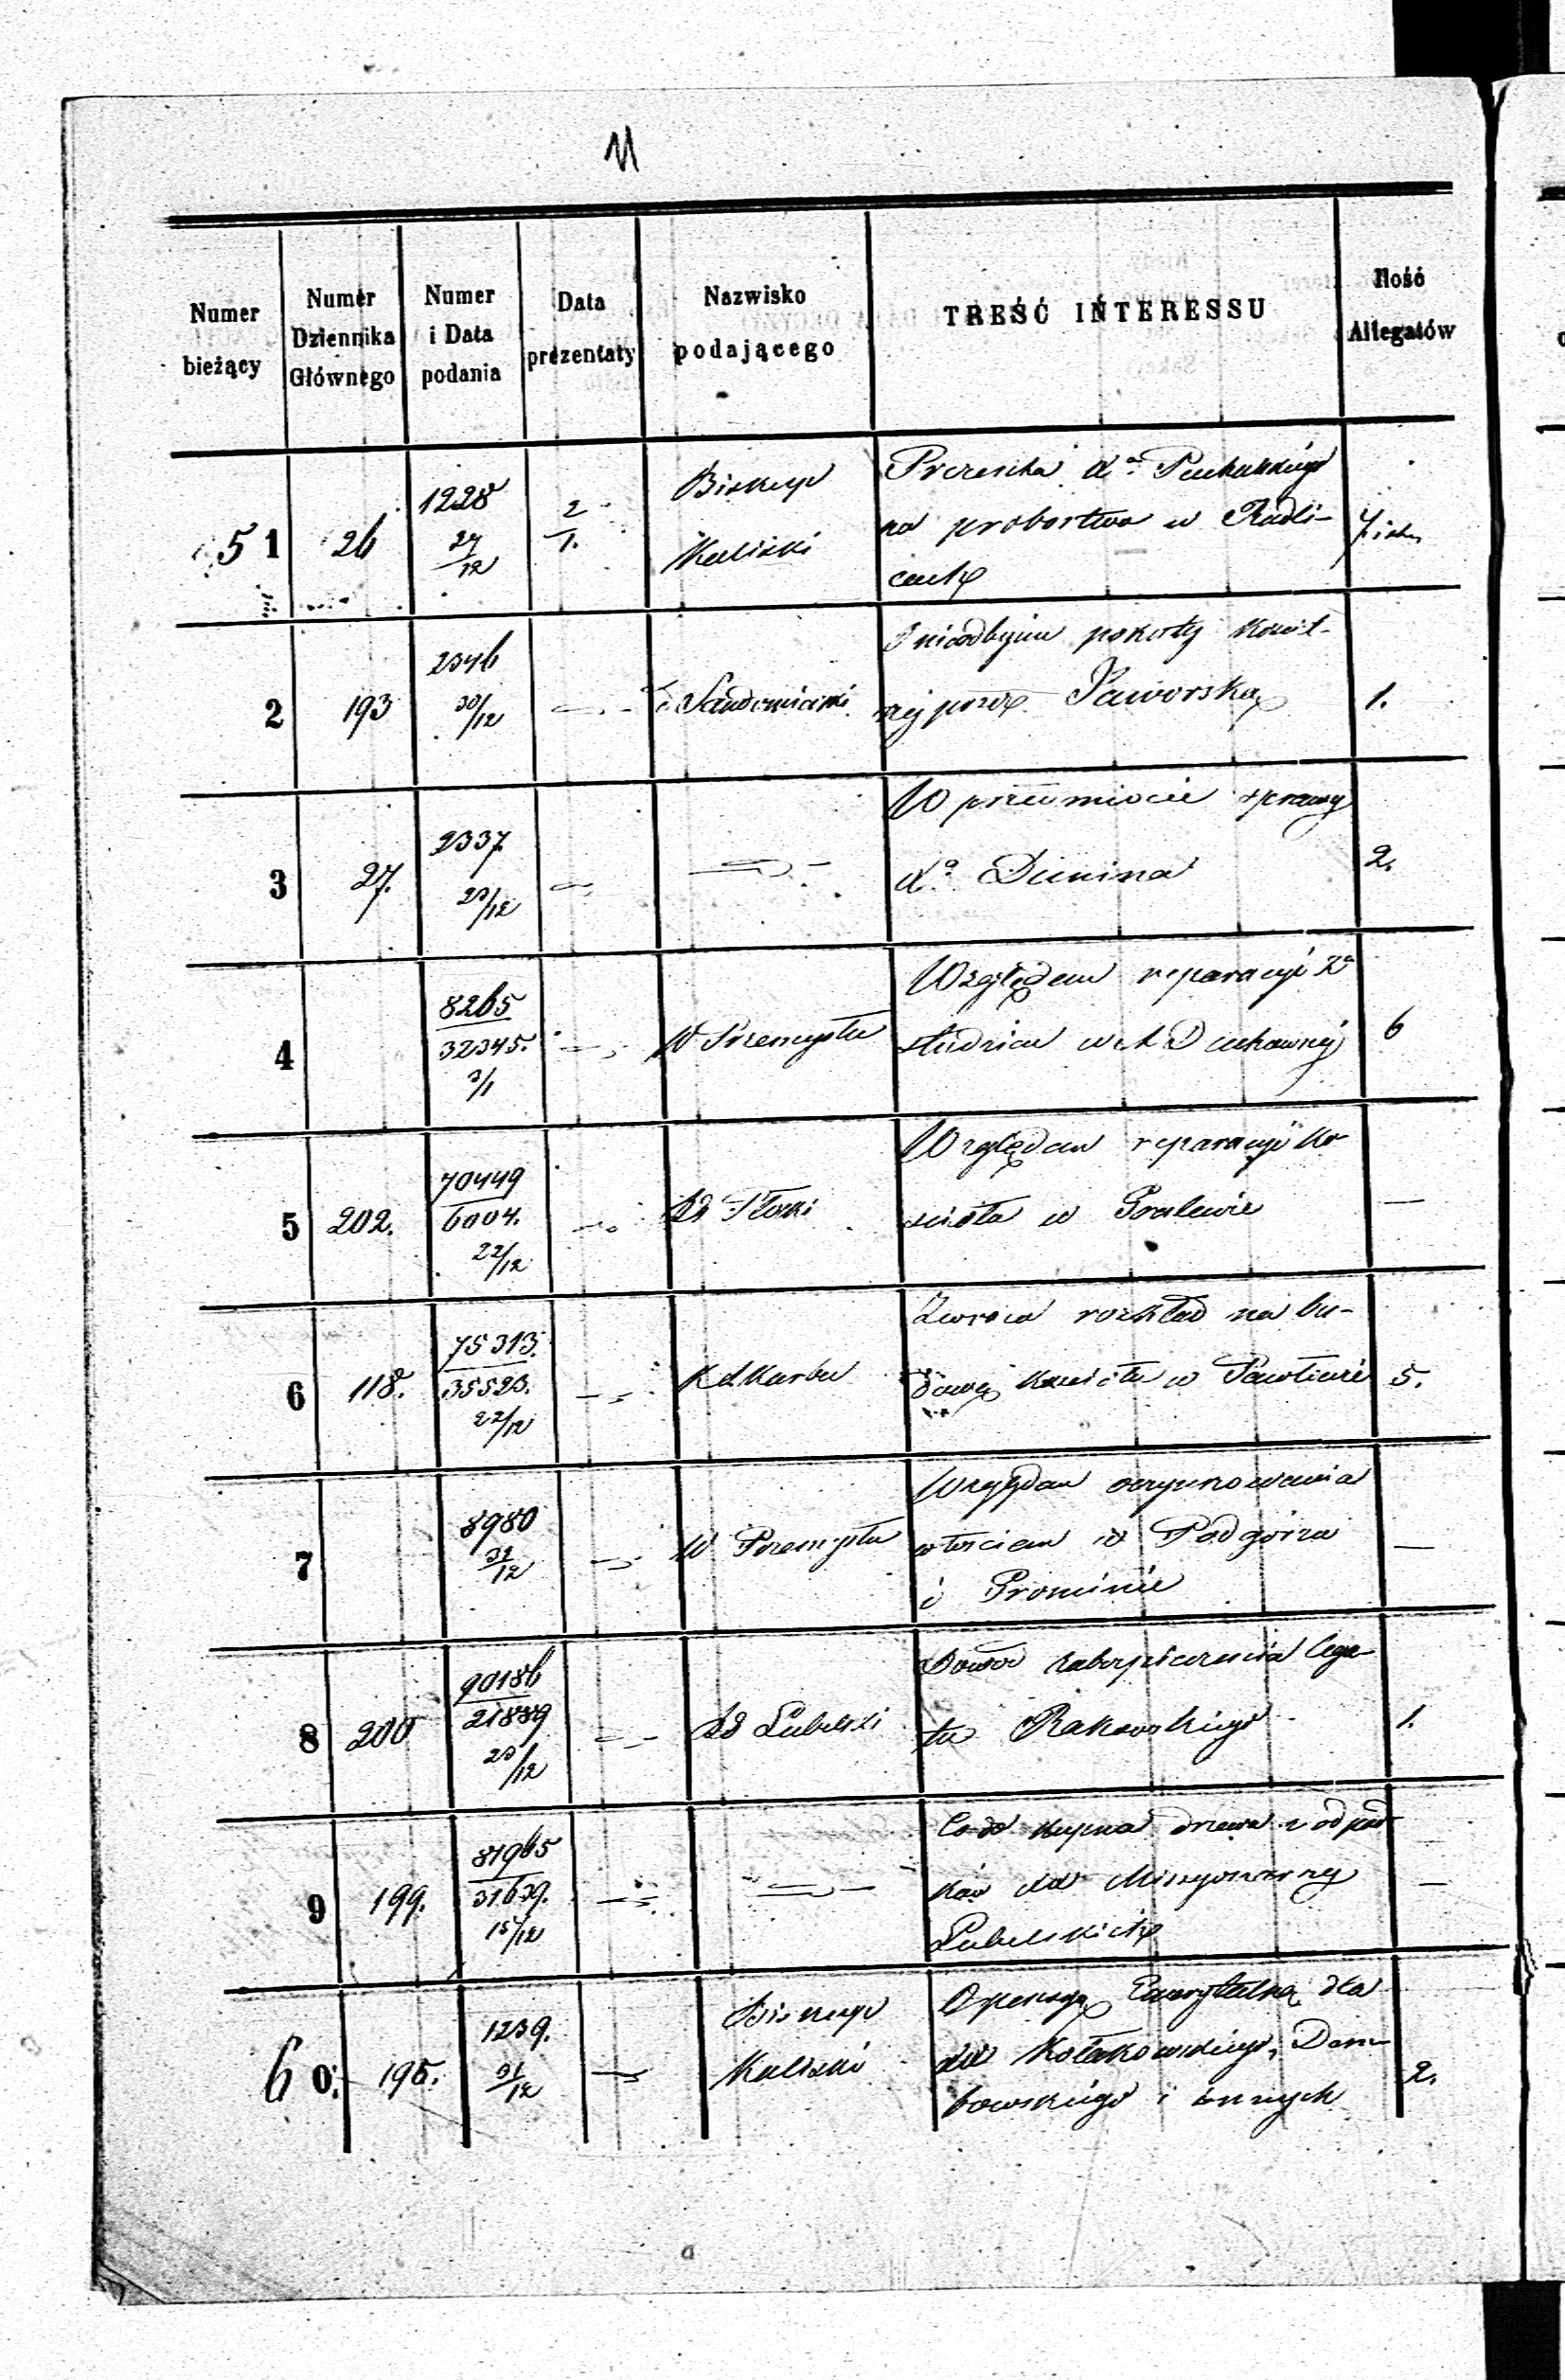 11
Numer bieżący
Numer Dziennika Głównego
Numer i Data podania
Data prezentaty
Nazwisko podającego
TREŚĆ INTERESSU
Ilość Allegatów
51 26 1228 27/12 2/1. Biskup Kaliski
na probostwo w Radli-
2 193 2346 30/12 Sandomierski
Jaworską 1.
3 27. 2337 23/12
W przedmiocie sprawy
Xa Dunina 2.
4 8265 32345. 3/1 W Przemysłu
Względem reparacyi
studzien 6
5 202. 70449 6004. 22/12 Rd Płocki
Względem reparacyi ko-
ścioła w Goralewie —
6 118. 75313. 35523. 22/12 Kd Skarbu
Zwraca rozkład na bu-
dowę kościoła w Pawłowie 5.
7 8980 31/12 W Przemysłu
Względem oczynszowania
włościan w Podgórze
i Prominie —
8 200 90186 21889 23/12 Rd Lubelski
Dowód zabezpieczenia lega-
tu Rakowskiego 1.
9 199. 81965 31639. 15/12
Co do kupna drzewa z odpad-
ków dla Missyonarzy
Lubelskich —
60. 195. 1239. 31/12 Biskup Kaliski
O pensyę Emerytalną dla
XX Kołakowskiego, Dom-
bowskiego i innych 2.